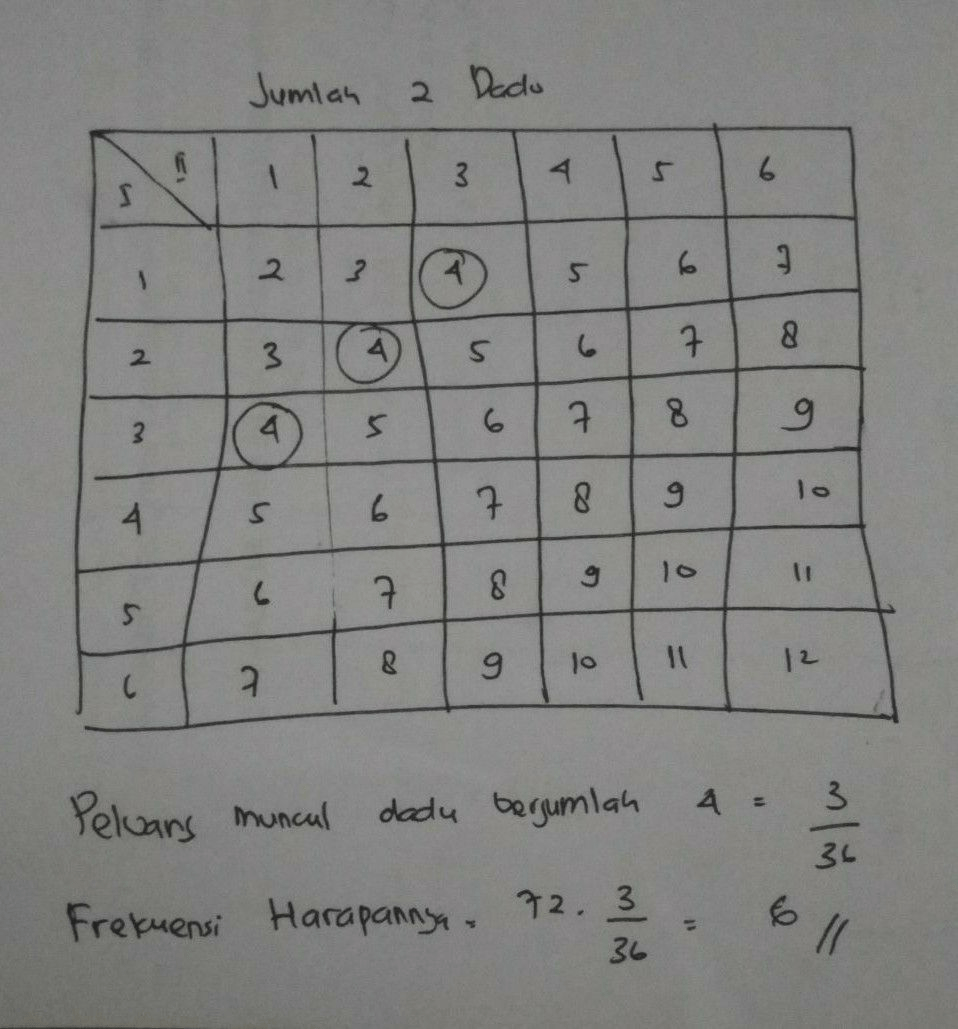 Jumlah 2 Dadu
I II 1 2 3 4 5 6
1 2 3 4 5 6 7
2 3 4 5 6 7 8
3 4 5 6 7 8 9
4 5 6 7 8 9 10
5 6 7 8 9 10 11
6 7 8 9 10 11 12
Peluang muncul dadu berjumlah 4 = 3/36
Frekuensi Harapannya = 72 . 3/36 = 6 //